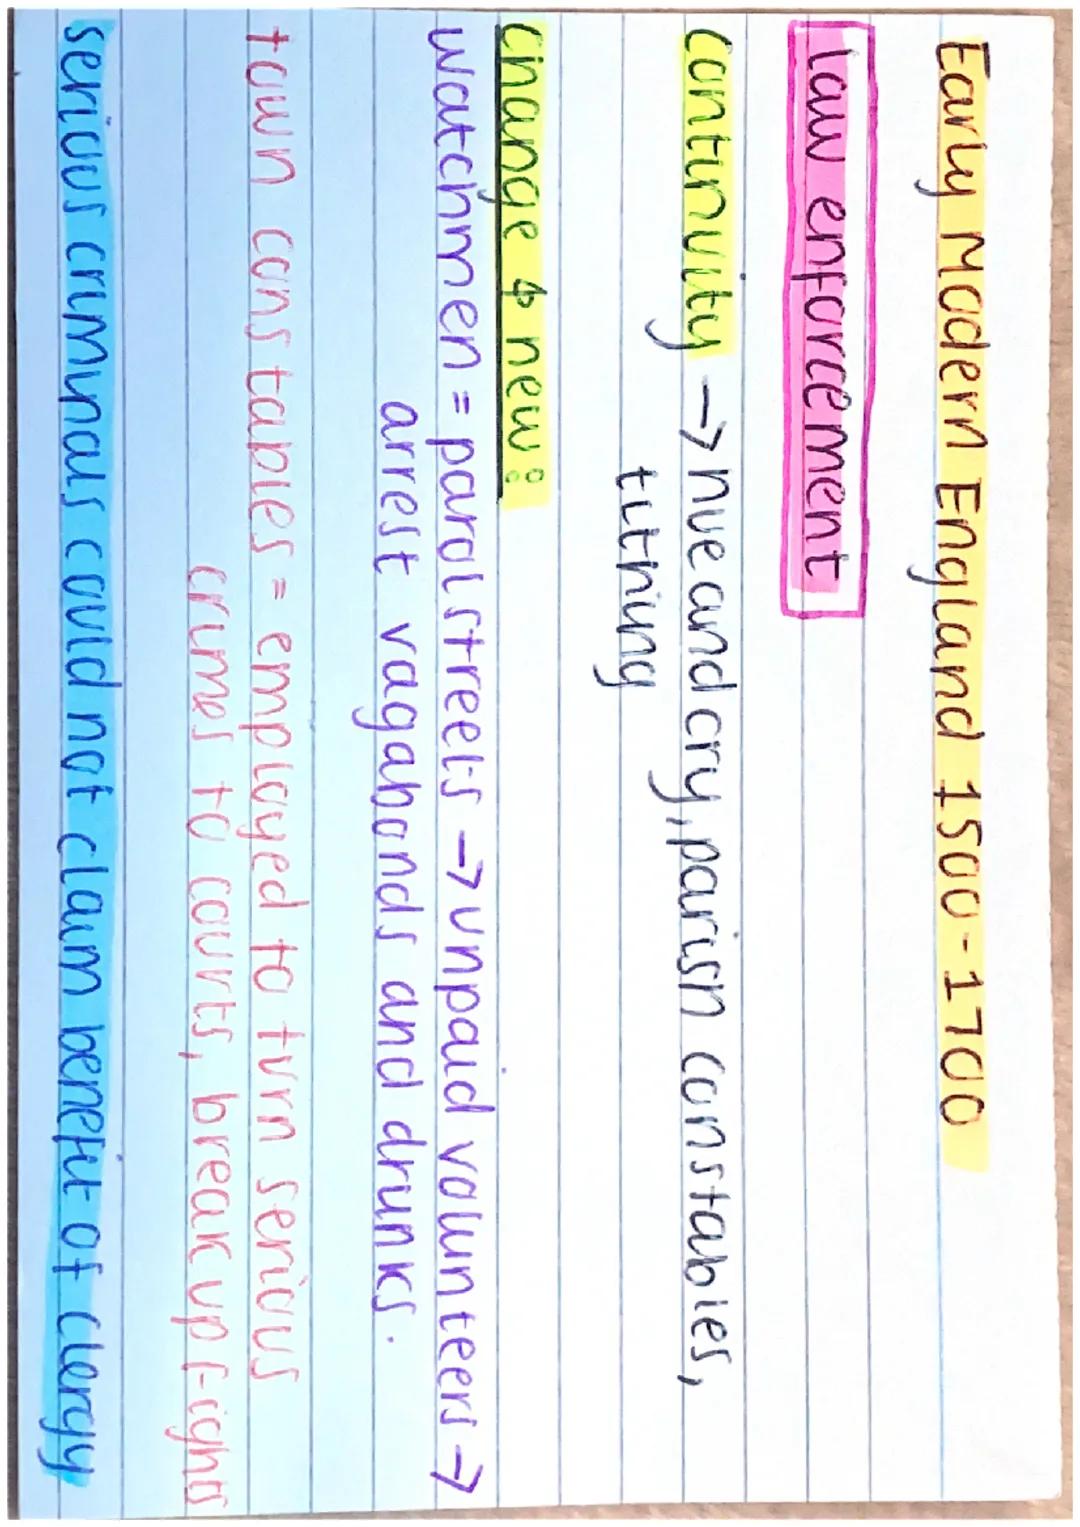 Early Modern England 1500-1700
law enforcement
Continuity → hue and cry, parish constables,
tithing
change & new:
watchmen = parol streets → unpaid volunteers →
arrest vagabonds and drunks.
town constables = employed to turn serious
crimes to courts, break up fights
serious criminals could not claim benefit of clergy